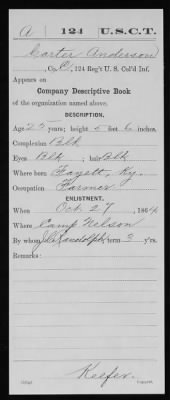 A | 124 | U.S.C.T.
Carter Anderson
, Co. C, 124 Reg't U. S. Col'd Inf.
Appears on
Company Descriptive Book
of the organization named above.
DESCRIPTION.
Age 25 years; height 5 feet 6 inches.
Complexion Blk
Eyes Blk, hair Blk
Where born Fayett, Ky.
Occupation Farmer
ENLISTMENT.
When Oct 27, 1864
Where Camp Nelson
By whom Randolph; term 3 y'rs.
Remarks:
Keefer
Copyist.